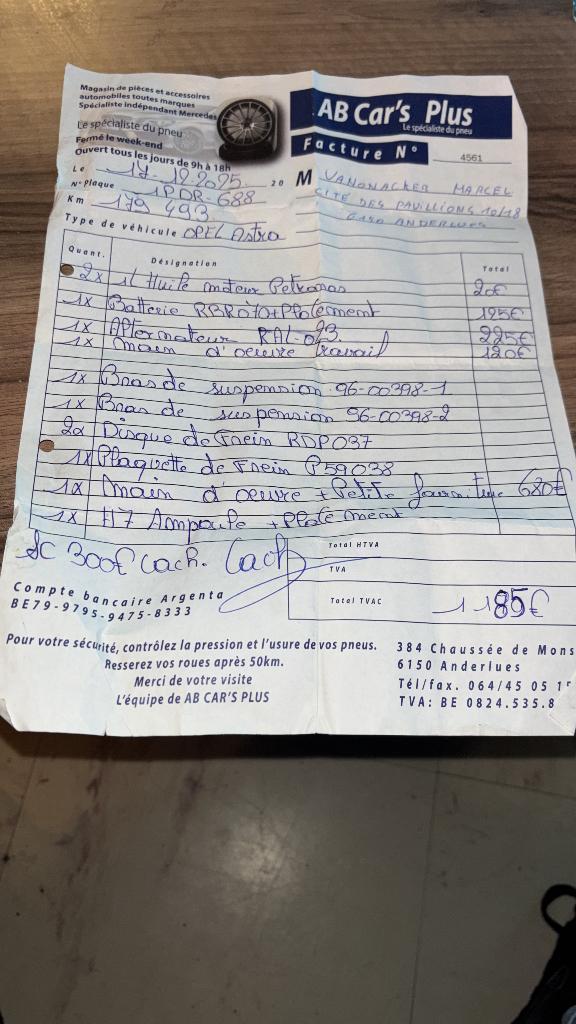 Magasin de pièces et accessoires
automobiles toutes marques
Spécialiste indépendant Mercedes
Le spécialiste du pneu
Fermé le week-end
Ouvert tous les jours de 9h à 18h
AB Car's Plus
Le spécialiste du pneu
Facture N° 4561
Le 17-12-2025. 20
N° Plaque 1PDR-688
Km 179 493
Type de véhicule OPEL Astra
M VANONACKER MARCEL
CITE DES PAVILLIONS 10/18
6150 ANDERLUES
Quant. Désignation Total
2x 1L Huile moteur Petronas 20€
1x Batterie + Placement 195€
1x Alternateur RAL-023 225€
1x Main d'oeuvre travail 120€
1x Bras de suspension 96-00398-1
1x Bras de suspension 96-00398-2
2x Disque de Frein RDP037
1x Plaquette de Frein P59038
1x Main d'oeuvre + Petite fourniture 680€
1x H7 Ampoule + Placement
300€ Cach. Cach
Total HTVA
TVA
Total TVAC 1185€
Compte bancaire Argenta
BE79-9795-9475-8333
Pour votre sécurité, contrôlez la pression et l'usure de vos pneus.
Resserez vos roues après 50km.
Merci de votre visite
L'équipe de AB CAR'S PLUS
384 Chaussée de Mons
6150 Anderlues
Tél/fax. 064/45 05 1
TVA: BE 0824.535.8